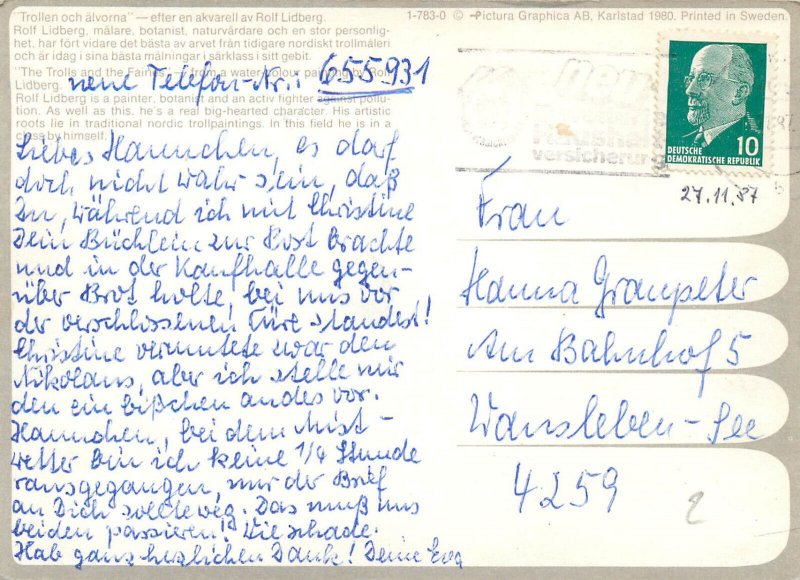 "Trollen och älvorna" — efter en akvarell av Rolf Lidberg.
Rolf Lidberg, målare, botanist, naturvårdare och en stor personlig-
het, har fört vidare det bästa av arvet från tidigare nordiskt trollmåleri
och är idag i sina bästa målningar i särklass i sitt gebit.
"The Trolls and the Fairies — from a water colour painting by Rolf
Lidberg.
Rolf Lidberg is a painter, botanist and an activ fighter against pollu-
tion. As well as this, he's a real big-hearted character. His artistic
roots lie in traditional nordic trollpaintings. In this field he is in a
class by himself.
1-783-0 © Pictura Graphica AB, Karlstad 1980. Printed in Sweden.
neue Telefon-Nr.: 655931
Liebes Hannchen, es darf
doch nicht wahr sein, daß
Du, während ich mit Christine
Dein Büchlein zur Post brachte
und in der Kaufhalle gegen-
über Brot holte, bei uns vor
der verschlossenen Türe standest!
Christine vermutete zwar den
Nikolaus, aber ich stelle mir
den ein bißchen anders vor.
Hannchen, bei dem Mist-
wetter bin ich keine 1/4 Stunde
rausgegangen, nur der Brief
an Dich sollte weg. Das muß uns
beiden passieren! Wie schade.
Hab ganz herzlichen Dank! Deine Eva
versicherung
10
DEUTSCHE
DEMOKRATISCHE REPUBLIK
27.11.87
Frau
Hanna Granpeter
Am Bahnhof 5
Wansleben-See
4259
2